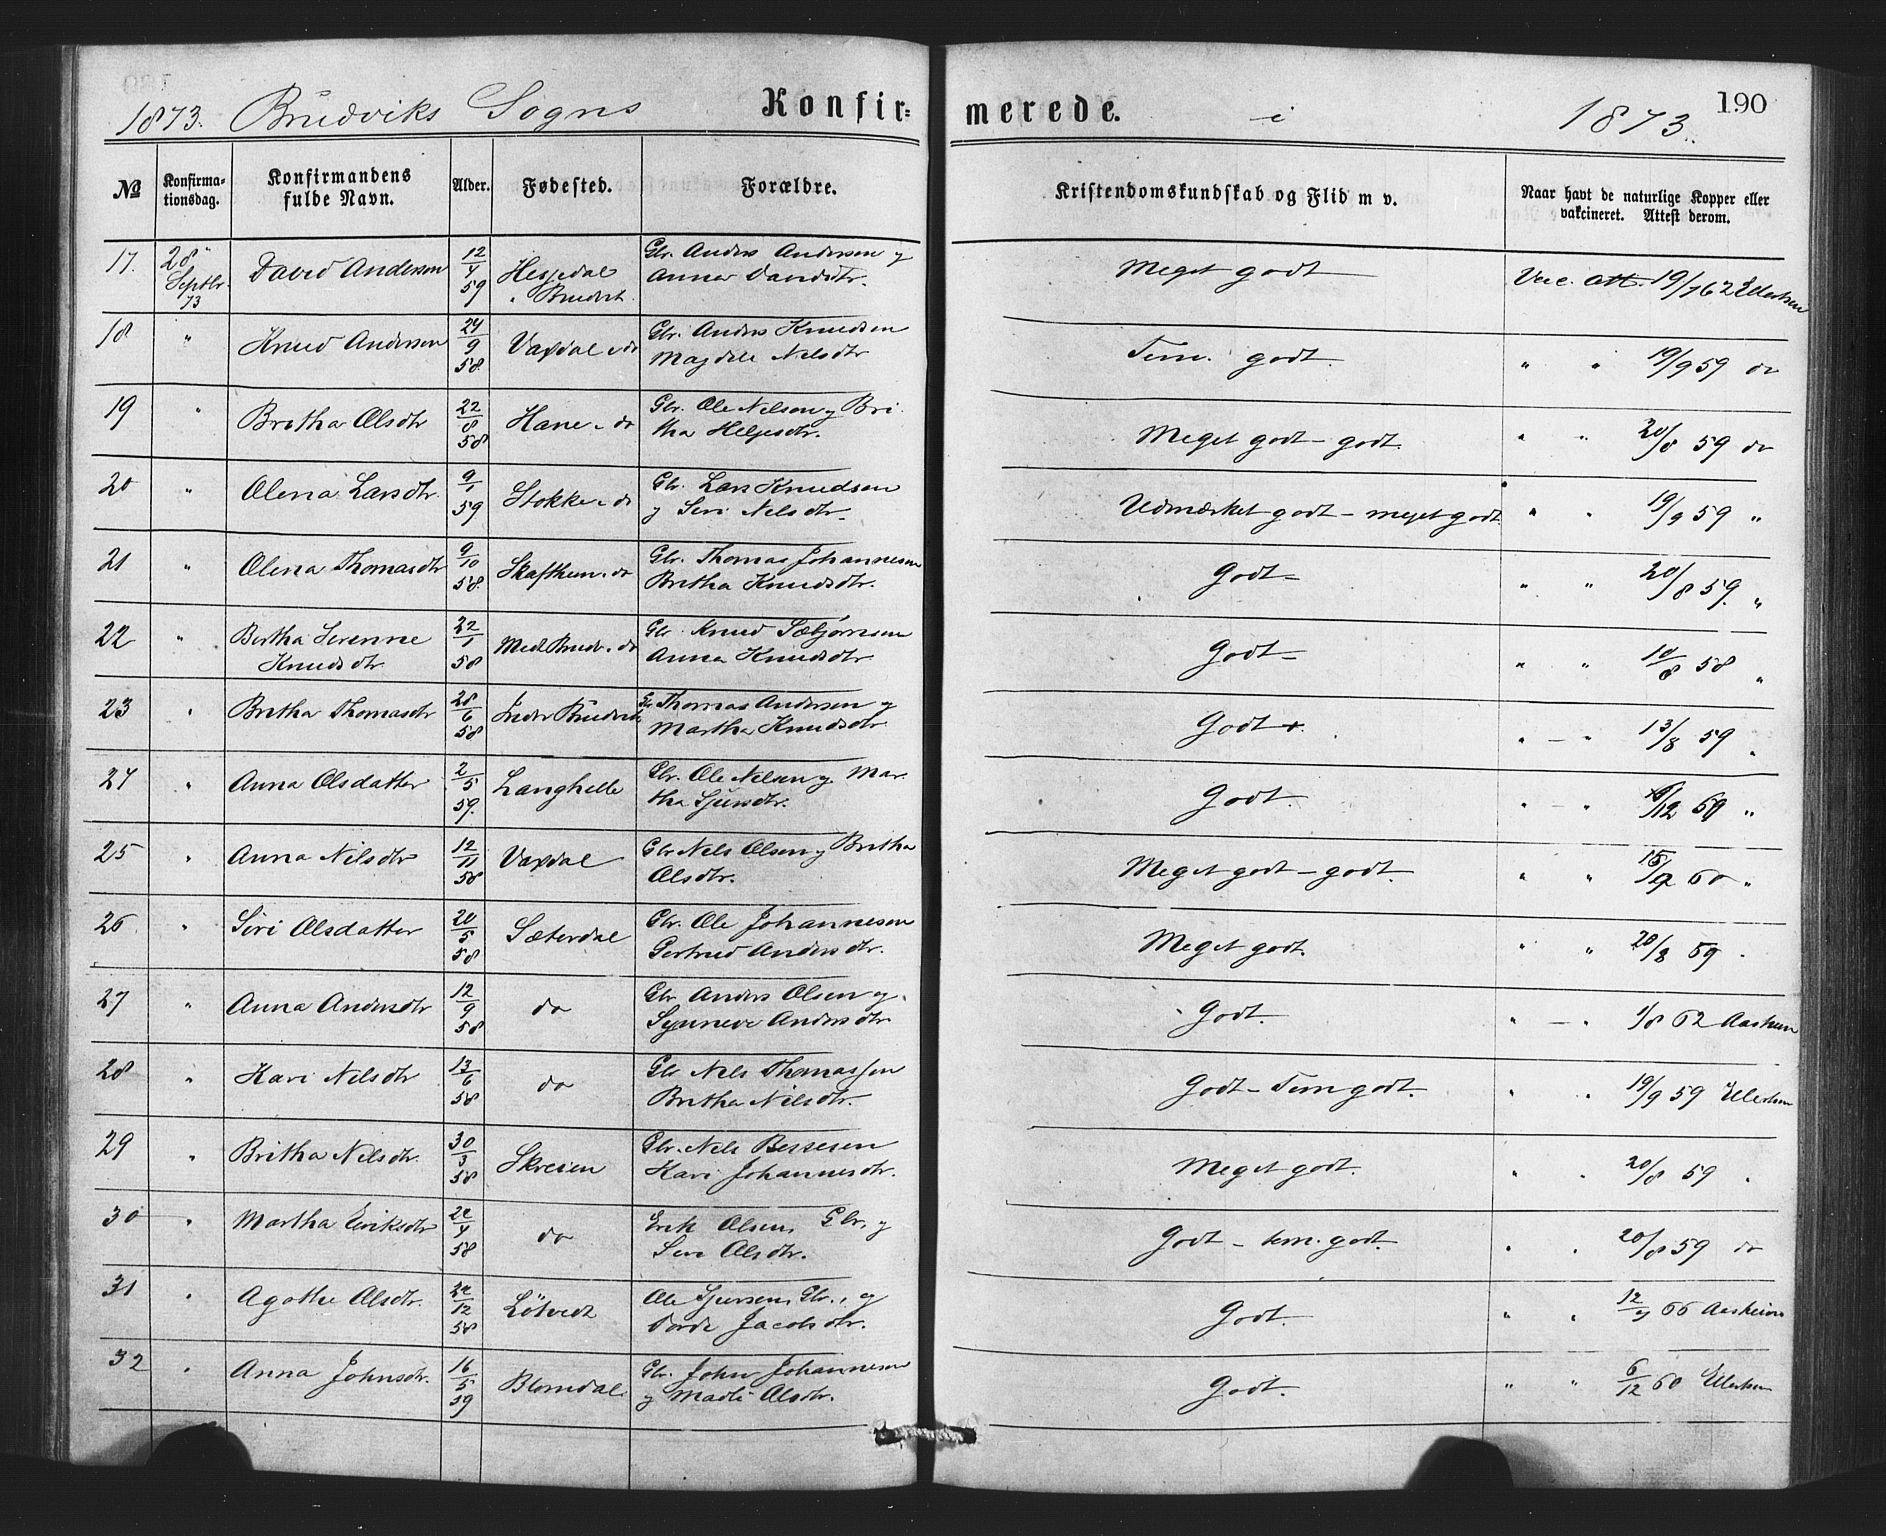 1873. Brudviks Sogns Konfir=
merede. i 1873. 190
№ Konfirma-tionsdag. Konfirmandens fulde Navn. Alder. Fødested. Forældre. Kristendomskundskab og Flid m v. Naar havt de naturlige Kopper eller vakcineret. Attest derom.
17. 28 Septbr. 73 David Andersen 12/4 59 Hesjedal Gbr. Anders Andersen og Anna Davidsdtr. Meget godt Vacc. Att. 19/7 62 Ellertsen
18 " Knud Andersen 24/9 58. Vaxdal - do Gbr. Anders Knudsen Magdele Nelsdtr Tem. godt. " " 19/9 59 do
19 " Britha Olsdtr 22/8 58 Hane - do Gbr. Ole Nelsen og Bri tha Helgesdtr. Meget godt - godt. " " 20/8 59 do
20 " Olena Larsdtr. 9/1 59 Stokke - do Gbr. Lars Knudsen og Siri Nelsdtr. Udmærket godt - meget godt " " 19/9 59 "
21 " Olena Thomasdtr 9/10 58. Skafthun - do Gbr. Thomas Johannesen Britha Knudsdtr. Godt - " " 20/8 59. "
22 " Bertha Serenne Knudsdtr 22/1 58 Mede Brudv. - do Gbr. Knud Sæbjørnsen Anna Knudsdtr Godt - " " 10/8 58 "
23 " Britha Thomasdtr 28/6 58 Indre Brudvik Gr. Thomas Andersen og Martha Knudsdtr Godt +. " - " 13/8 59 "
24 " Anna Olsdatter 2/5 59. Langhelle Gbr. Ole Nelsen og Mar tha Sjursdtr. Godt. " - " 6/12 60 "
25 " Anna Nilsdtr 12/11 58 Vaxdal Gbr Nels Olsen og Britha Olsdtr. Meget godt - godt. " " 15/9 60 "
26. " Siri Olsdatter 20/5 58 Sæterdal Gbr. Ole Johannesen Gertrud Andersdtr. Meget godt. " " 20/8 59 "
27 " Anna Andersdtr 12/9 58 do Gbr Anders Olsen og Synneve Andersdtr. Godt. " - " 1/8 62 Aasheim
28 " Kari Nelsdtr 13/6 58 do Gbr Nels Thomassen Britha Nilsdtr. Godt - Tem godt. " " 19/9 59 Ellertsen
29 " Britha Nelsdtr. 30/3 58 Skreien Gbr. Nels Bessesen Kari Johannesdtr. Meget godt. " " 20/8 59 "
30 " Martha Eriksdtr 22/4 58 do Erik Olsen, Gbr, og Siri Olsdtr. Godt - tem. godt. " " 20/8 59 do
31 " Agothe Olsdtr. 22/12 58 Løtvedt Ole Sjursen, Gbr., og Dorde Jacobsdtr. Godt. " " 12/9 66 Aasheim
32 " Anna Johnsdtr. 16/5 59 Blomdal. Gbr. John Johannesen og Madli Olsdtr. Godt. " " 6/12 60 Ellertsen